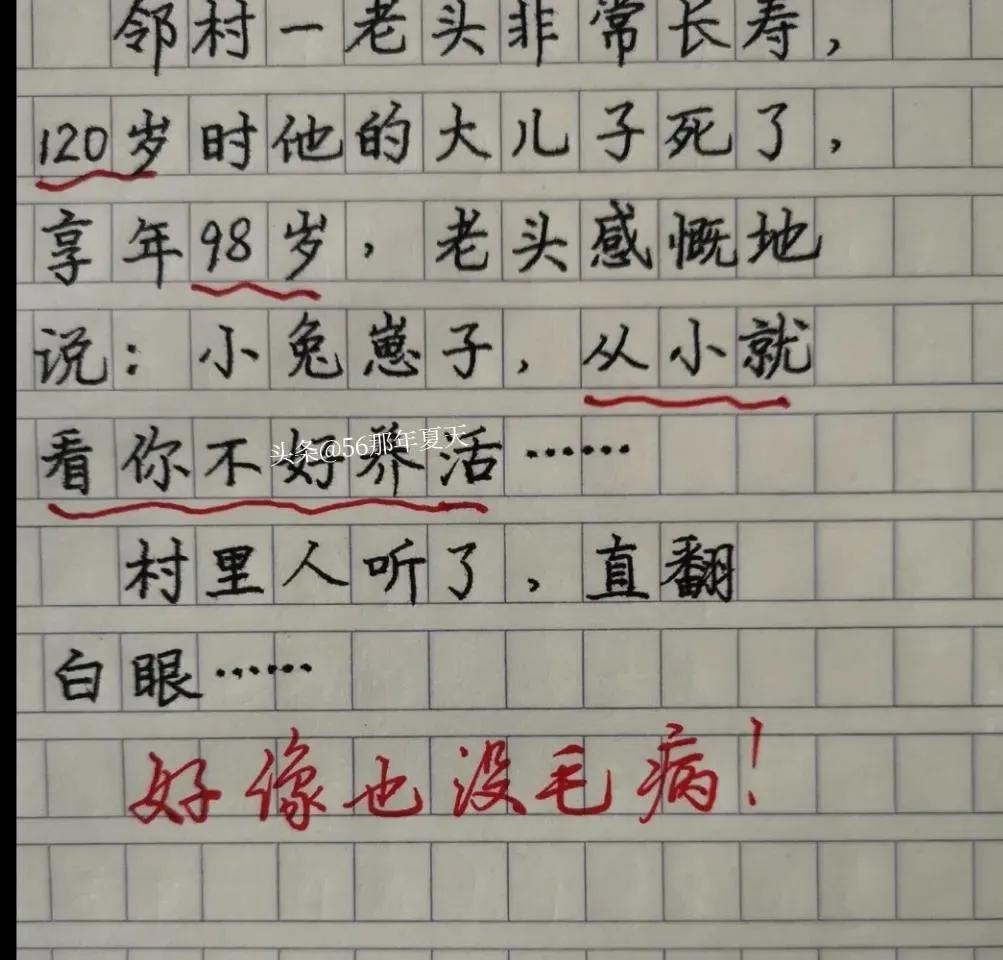 邻村一老头非常长寿，
120岁时他的大儿子死了，
享年98岁，老头感慨地
说：小兔崽子，从小就
看你不好养活……
头条@56那年夏天
村里人听了，直翻
白眼……
好像也没毛病！